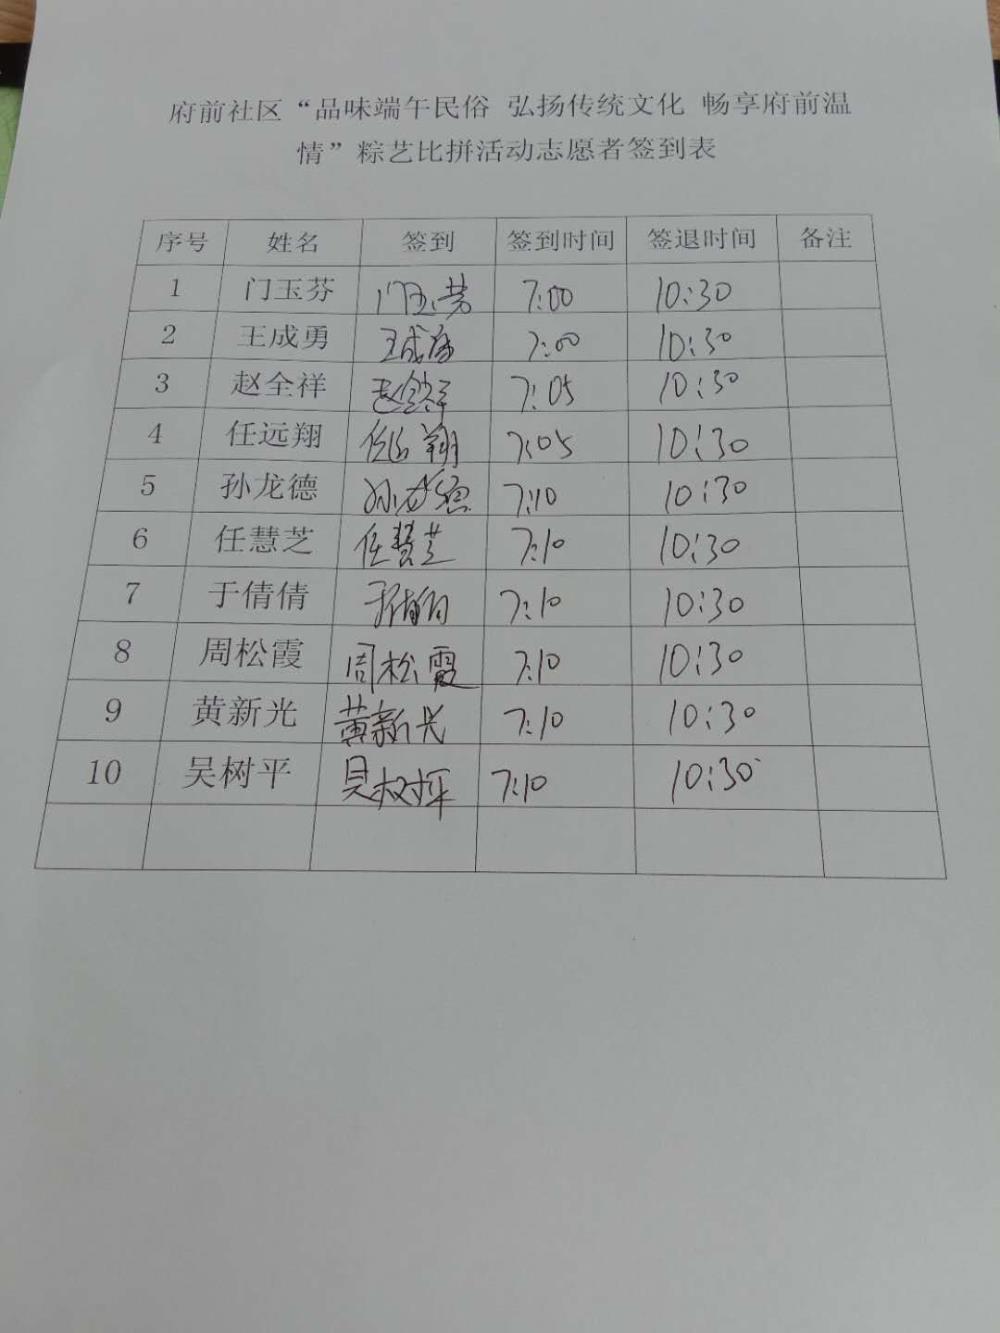 府前社区“品味端午民俗 弘扬传统文化 畅享府前温
情”粽艺比拼活动志愿者签到表
序号 姓名 签到 签到时间 签退时间 备注
1 门玉芬 门玉芳 7:00 10:30
2 王成勇 王成勇 7:00 10:30
3 赵全祥 赵全祥 7:05 10:30
4 任远翔 任远翔 7:05 10:30
5 孙龙德 孙龙德 7:10 10:30
6 任慧芝 任慧芝 7:10 10:30
7 于倩倩 于倩倩 7:10 10:30
8 周松霞 周松霞 7:10 10:30
9 黄新光 黄新光 7:10 10:30
10 吴树平 吴树平 7:10 10:30